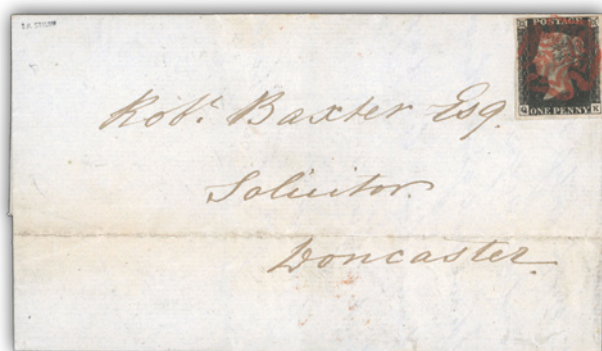 POSTAGE
ONE PENNY
K
Robt. Baxter Esq.
Solicitor
Doncaster